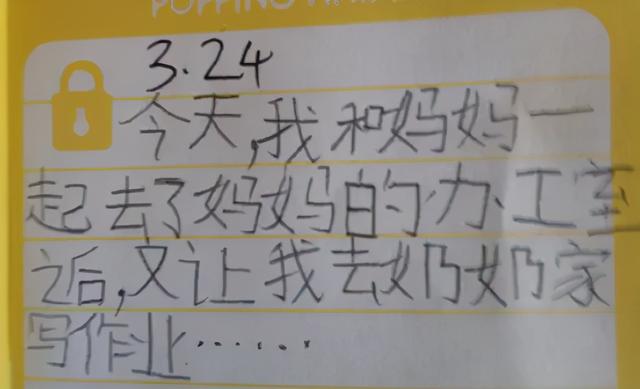 3.24
今天,我和妈妈一
起去了妈妈的办工室
之后,又让我去奶奶家
写作业······